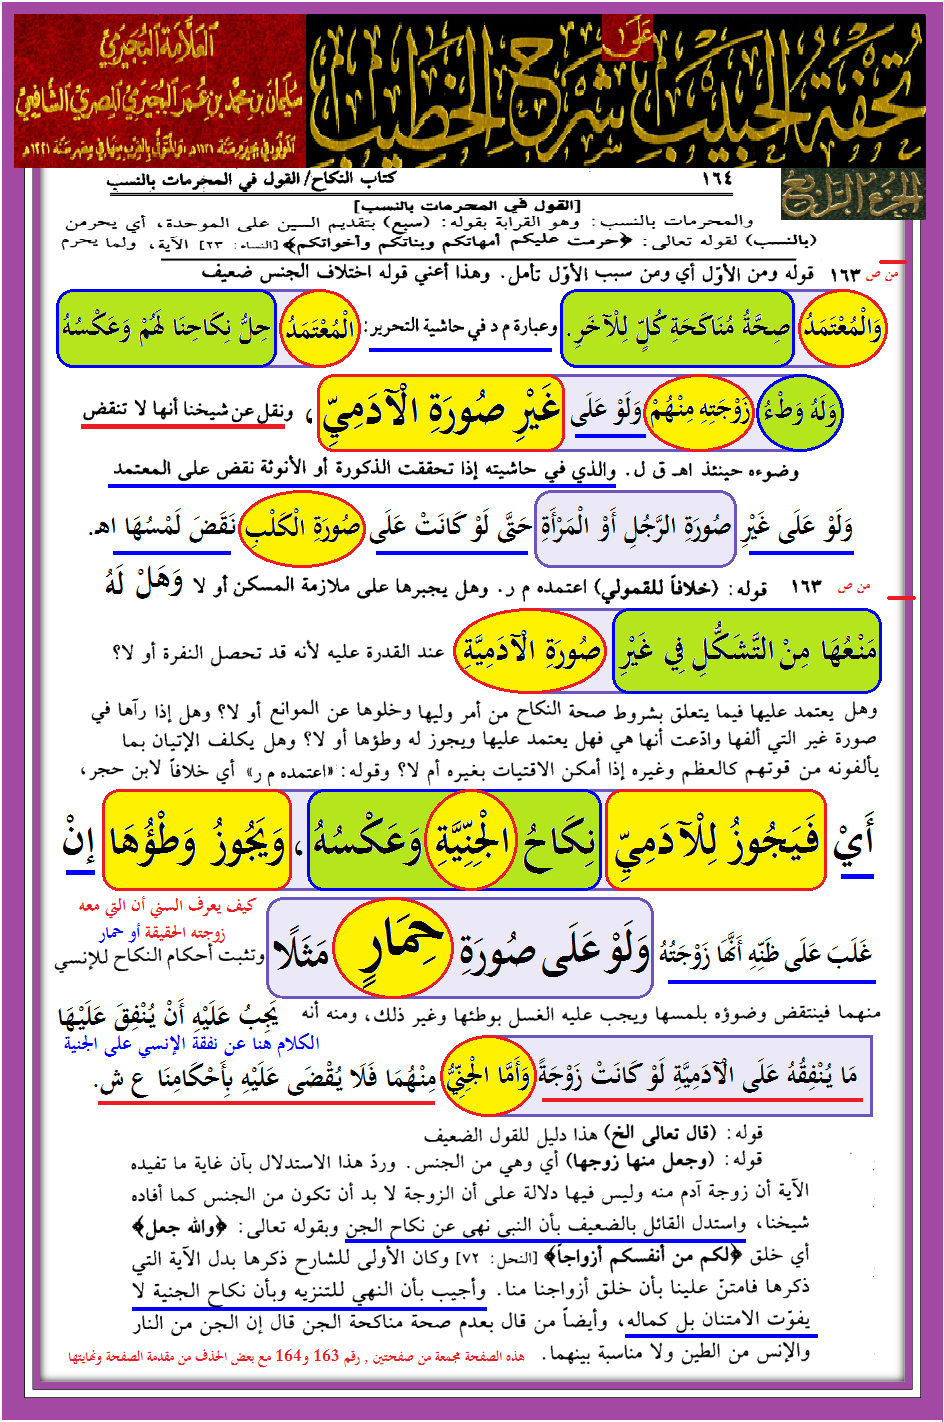 العلامة البجيرمي
سليمان بن محمد بن عمر البجيرمي المصري الشافعي
المولود في بجيرم سنة ١١٣١هـ، والمتوفى بالقرب منها في مصر سنة ١٢٢١هـ
تحفة الحبيب على شرح الخطيب
الجزء الرابع
١٦٤ كتاب النكاح/ القول في المحرمات بالنسب
[القول في المحرمات بالنسب]
والمحرمات بالنسب: وهو القرابة بقوله: (سبع) بتقديم السين على الموحدة، أي يحرمن
(بالنسب) لقوله تعالى: ﴿حرمت عليكم أمهاتكم وبناتكم وأخواتكم﴾ [النساء: ٢٣] الآية، ولما يحرم
من ص ١٦٣ قوله ومن الأوّل أي ومن سبب الأوّل تأمل. وهذا أعني قوله اختلاف الجنس ضعيف
وَالْمُعْتَمَدُ صِحَّةُ مُنَاكَحَةِ كُلٍّ لِلْآخَرِ. وعبارة م د في حاشية التحرير: الْمُعْتَمَدُ حِلُّ نِكَاحِنَا لَهُمْ وَعَكْسُهُ
وَلَهُ وَطْءُ زَوْجَتِهِ مِنْهُمْ وَلَوْ عَلَى غَيْرِ صُورَةِ الْآدَمِيِّ ، ونقل عن شيخنا أنها لا تنقض
وضوءه حينئذ اهـ ق ل. والذي في حاشيته إذا تحققت الذكورة أو الأنوثة نقض على المعتمد
وَلَوْ عَلَى غَيْرِ صُورَةِ الرَّجُلِ أَوْ الْمَرْأَةِ حَتَّى لَوْ كَانَتْ عَلَى صُورَةِ الْكَلْبِ نَقَضَ لَمْسُهَا اهـ.
من ص ١٦٣ قوله: (خلافاً للقمولي) اعتمده م ر. وهل يجبرها على ملازمة المسكن أو لا وَهَلْ لَهُ
مَنْعُهَا مِنْ التَّشَكُّلِ فِي غَيْرِ صُورَةِ الْآدَمِيَّةِ عند القدرة عليه لأنه قد تحصل النفرة أو لا؟
وهل يعتمد عليها فيما يتعلق بشروط صحة النكاح من أمر وليها وخلوها عن الموانع أو لا؟ وهل إذا رآها في
صورة غير التي ألفها وادّعت أنها هي فهل يعتمد عليها ويجوز له وطؤها أو لا؟ وهل يكلف الإتيان بما
يألفونه من قوتهم كالعظم وغيره إذا أمكن الاقتيات بغيره أم لا؟ وقوله: «اعتمده م ر» أي خلافاً لابن حجر،
أَيْ فَيَجُوزُ لِلْآدَمِيِّ نِكَاحُ الْجِنِّيَّةِ وَعَكْسُهُ ، وَيَجُوزُ وَطْؤُهَا إنْ
غَلَبَ عَلَى ظَنِّهِ أَنَّهَا زَوْجَتُهُ وَلَوْ عَلَى صُورَةِ حِمَارٍ مَثَلًا وتثبت أحكام النكاح للإنسي
كيف يعرف السني أن التي معه
زوجته الحقيقة أو حمار
منهما فينتقض وضوؤه بلمسها ويجب عليه الغسل بوطئها وغير ذلك، ومنه أنه يَجِبُ عَلَيْهِ أَنْ يُنْفِقَ عَلَيْهَا
الكلام هنا عن نفقة الإنسي على الجنية
مَا يُنْفِقُهُ عَلَى الْآدَمِيَّةِ لَوْ كَانَتْ زَوْجَةً وَأَمَّا الْجِنِّيُّ مِنْهُمَا فَلَا يُقْضَى عَلَيْهِ بِأَحْكَامِنَا ع ش.
قوله: (قال تعالى الخ) هذا دليل للقول الضعيف
قوله: (وجعل منها زوجها) أي وهي من الجنس. وردّ هذا الاستدلال بأن غاية ما تفيده
الآية أن زوجة آدم منه وليس فيها دلالة على أن الزوجة لا بد أن تكون من الجنس كما أفاده
شيخنا، واستدل القائل بالضعيف بأن النبي نهى عن نكاح الجن وبقوله تعالى: ﴿والله جعل﴾
أي خلق ﴿لكم من أنفسكم أزواجاً﴾ [النحل: ٧٢] وكان الأولى للشارح ذكرها بدل الآية التي
ذكرها فامتنّ علينا بأن خلق أزواجنا منا. وأجيب بأن النهي للتنزيه وبأن نكاح الجنية لا
يفوّت الامتنان بل كماله، وأيضاً من قال بعدم صحة مناكحة الجن قال إن الجن من النار
والإنس من الطين ولا مناسبة بينهما. هذه الصفحة مجمعة من صفحتين , رقم 163 و164 مع بعض الحذف من مقدمة الصفحة ونهايتها